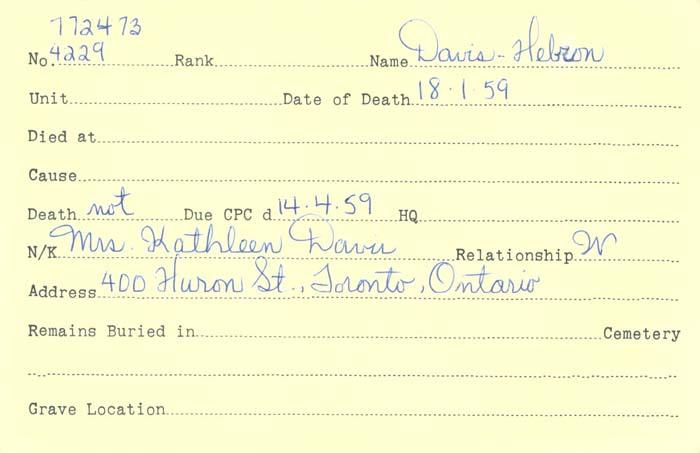 772473
No. 4229 Rank Name Davis-Hebron
Unit Date of Death 18.1.59
Died at
Cause
Death not Due CPC d. 14.4.59 HQ
N/K Mrs. Kathleen Davis Relationship W
Address 400 Huron St., Toronto, Ontario
Remains Buried in Cemetery
Grave Location